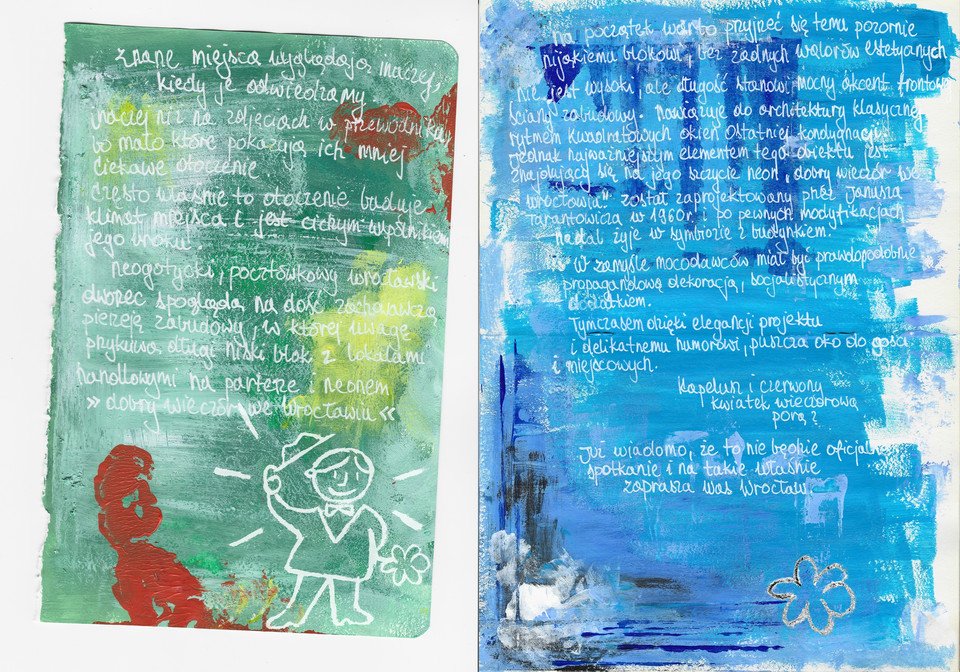 znane miejsca wyglądają inaczej,
kiedy je odwiedzamy
inaczej niż na zdjęciach w przewodniku,
bo mało które pokazują ich mniej
ciekawe otoczenie
często właśnie to otoczenie buduje
klimat miejsca i jest cichym wspólnikiem
jego uroku.
neogotycki, pocztówkowy wrocławski
dworzec spogląda na dość zachowawczą
pierzeję zabudowy, w której uwagę
przykuwa długi niski blok z lokalami
handlowymi na parterze i neonem
» dobry wieczór we Wrocławiu «
na początek warto przyjrzeć się temu pozornie
nijakiemu blokowi, bez żadnych walorów estetycznych
Nie jest wysoki, ale długość stanowi mocny akcent frontowej
ściany zabudowy. Nawiązuje do architektury klasycznej
rytmem kwadratowych okien ostatniej kondygnacji
jednak najważniejszym elementem tego obiektu jest
znajdujący się na jego szczycie neon „dobry wieczór we
wrocławiu" został zaprojektowany przez Janusza
Tarantowicza w 1960r i po pewnych modyfikacjach
nadal żyje w symbiozie z budynkiem.
W zamyśle mocodawców miał być prawdopodobnie
propagandową dekoracją, socjalistycznym
dodatkiem.
Tymczasem dzięki elegancji projektu
i delikatnemu humorowi, puszcza oko do gości
i miejscowych.
Kapelusz i czerwony
kwiatek wieczorową
porą?
Już wiadomo, że to nie będzie oficjalne
spotkanie i na takie właśnie
zaprasza was Wrocław.